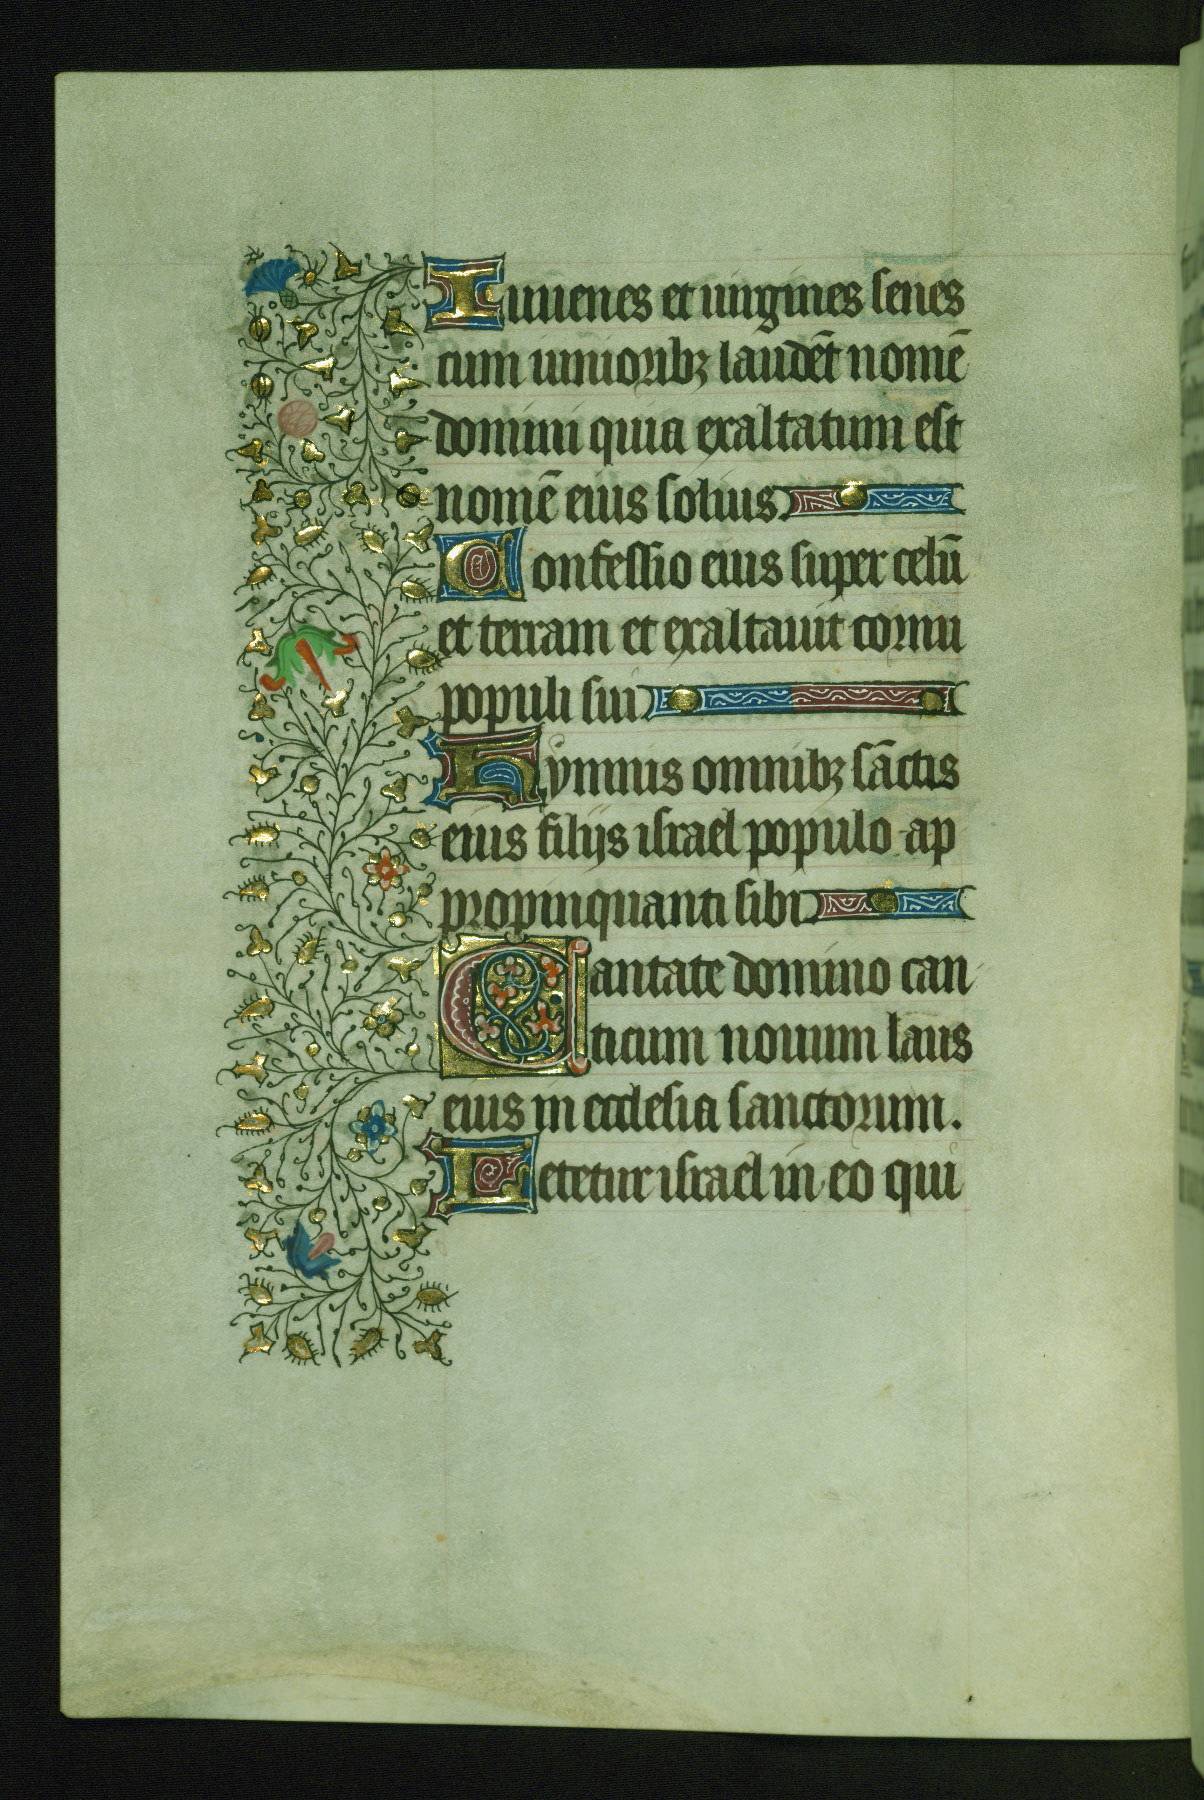 Iuuenes et uirgines senes
cum iunioribꝫ laudēt nomē
domini quia exaltatum est
nomē eius solius
Confessio eius super celū
et terram et exaltauit cornu
populi sui
Hymnus omnibꝫ sāctis
eius filijs israel populo ap
propinquanti sibi
Cantate domino can
ticum nouum laus
eius in ecclesia sanctorum.
Letetur israel in eo qui